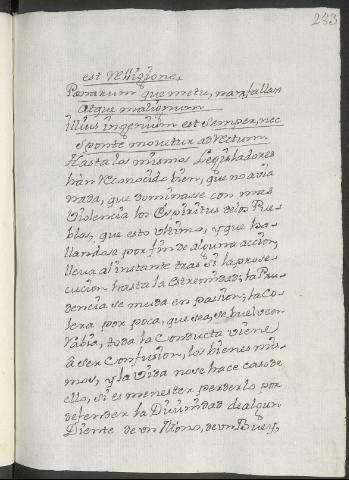 233
est Religione,
Penarum que metu, nam fallax
atque malignum
illius ingenium est semper, nec
sponte movetur ad rectum.
Hasta los mismos Legisladores
han reconocido bien, que no avia
nada, que dominasse con mas
violencia los Espiritus delos Pue-
blos, que esto ultimo, y que ha-
llandose por fin de alguna accion,
lleva al instante tras si la prose-
cucion hasta la extremidad; la Pru-
dencia se muda en passion; la Co-
lera por poca, que sea, se buelve en
Rabia, toda la Conducta viene
a ser Confusion, los bienes mis-
mos, y la vida no se hace caso de
ello, si es menester perderlo por
defender la Divinidad de algun
Diente de un Mono, de un Buey,